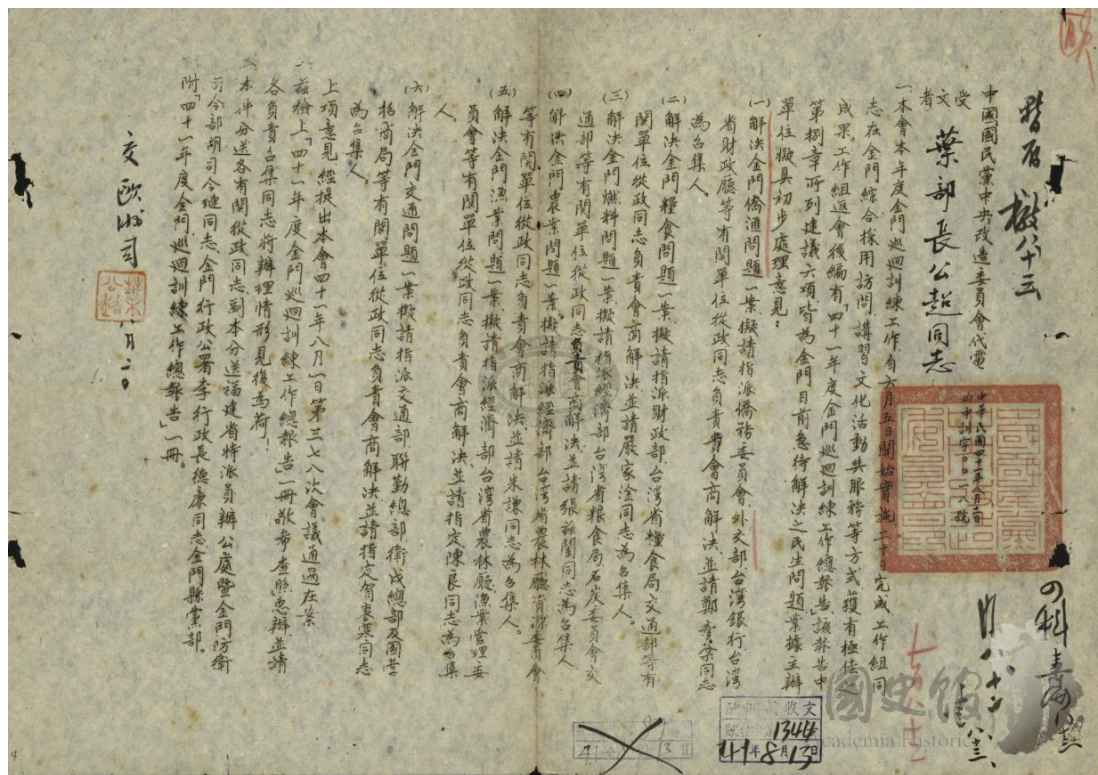 中國國民黨中央改造委員會代電
受文者 葉部長公超同志
中華民國四十一年八月
「本會本年度金門巡迴訓練工作自六月五日開始實施二十日完成工作組同
志在金門綜合採用訪問、講習、文化活動與服務等方式獲有極佳之
成果。工作組返會後編有「四十一年度金門巡迴訓練工作總報告」該報告中
第捌章所列建議六項皆為金門目前急待解決之民生問題業據主辦
單位擬具初步處理意見:
(一)解決金門僑滙問題一案擬請指派僑務委員會、外交部、台灣銀行、台灣
省財政廳等有關單位從政同志負責會商解決、並請鄭彥棻同志
為召集人。
(二)解決金門糧食問題一案擬請指派財政部、台灣省糧食局、交通部等有
關單位從政同志負責會商解決並請嚴家淦同志為召集人。
(三)解決金門燃料問題一案擬請指派經濟部、台灣省糧食局、石炭委員會、交
通部等有關單位從政同志負責會商解決、並請張茲闓同志為召集人
(四)解決金門農業問題一案擬請指派經濟部、台灣省農林廳、資源委員會
等有關單位從政同志負責會商解決並請朱謙同志為召集人。
(五)解決金門漁業問題一案擬請指派經濟部、台灣省農林廳、漁業管理委
員會等有關單位從政同志負責會商解決、並請指定陳良同志為召集
人、
(六)解決金門交通問題一案擬請指派交通部、聯勤總部、衛戍總部及國營
招商局等有關單位從政同志負責會商解決並請指定賀衷寒同志
為召集人。
上項意見經提出本會四十一年八月一日第三七八次會議通過在案
茲檢上「四十一年度金門巡迴訓練工作總報告」一冊敬希查照惠辦並請
各負責召集同志將辦理情形見復為荷!
本件分送各有關從政同志副本分送福建省特派員辦公處暨金門防衛
司令部胡司令璉同志金門行政公署李行政長德廉同志金門縣黨部。
附「四十一年度金門巡迴訓練工作總報告」一冊。
交歐洲司
葉公超
八月
收文
1344
41年8月13日
國史館
Academia Historica